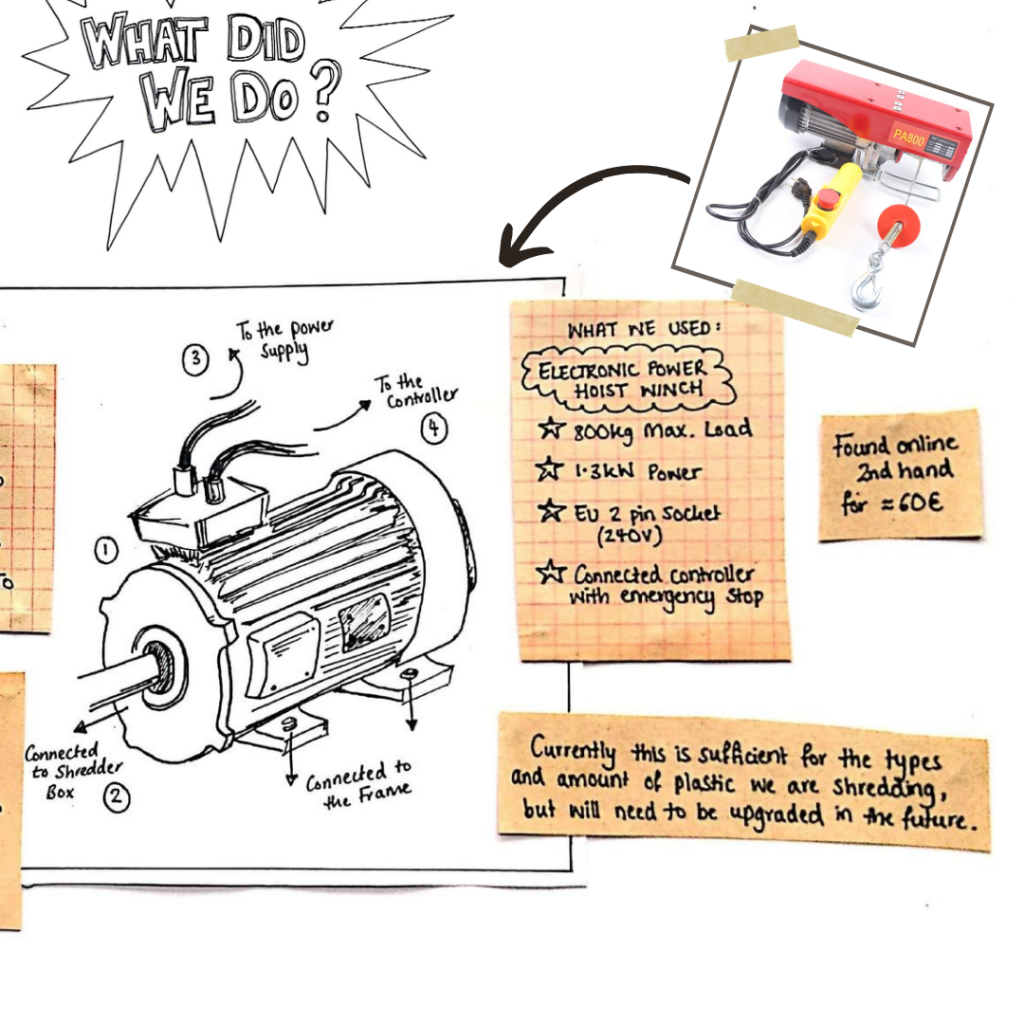 WHAT DID
WE DO?
PA800
③ To the power
supply
To the
Controller
④
①
Connected
to Shredder
Box ②
Connected to
the Frame
WHAT WE USED:
ELECTRONIC POWER
HOIST WINCH
☆ 800kg Max. Load
☆ 1.3kW Power
☆ EU 2 pin Socket
(240V)
☆ Connected controller
with emergency stop
Found online
2nd hand
for ≈60€
Currently this is sufficient for the types
and amount of plastic we are shredding,
but will need to be upgraded in the future.
To